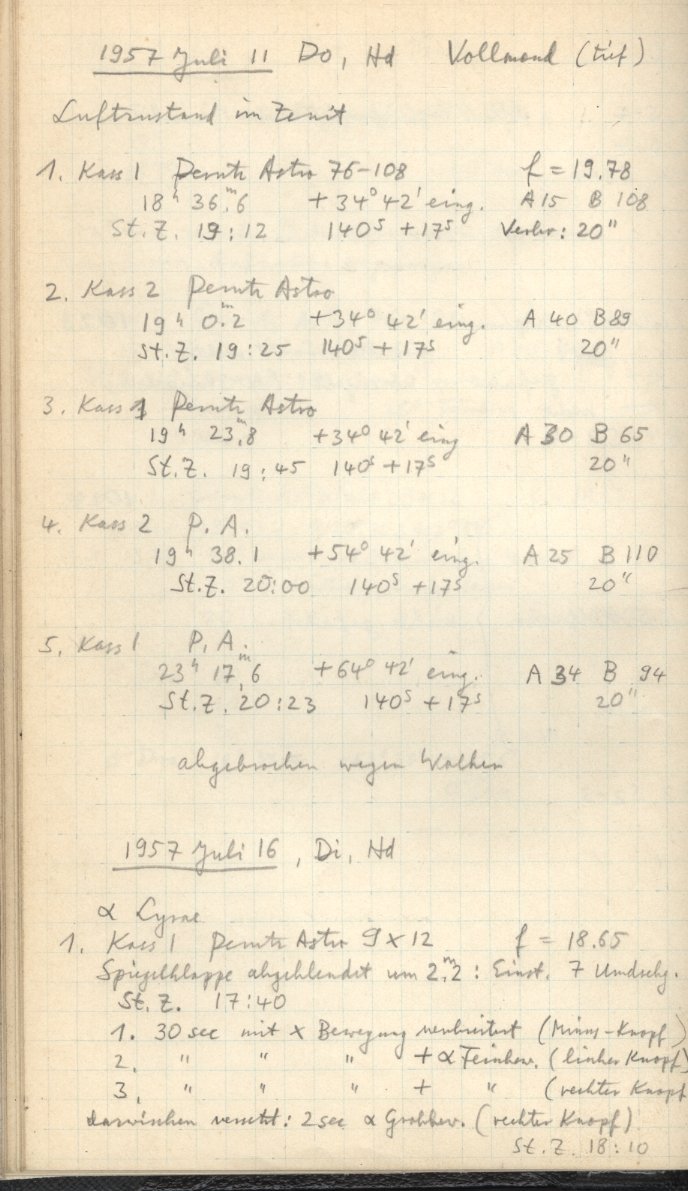 1957 Juli 11 Do, Hd Vollmond (tief)
Luftzustand im Zenit
1. Kass 1 Perutz Astro 76-108 f = 19.78
18ʰ 36ᵐ.6 +34° 42' eing. A 15 B 108
St.Z. 19:12 140ˢ +17ˢ Verbr: 20"
2. Kass 2 Perutz Astro
19ʰ 0ᵐ.2 +34° 42' eing. A 40 B 89
St.Z. 19:25 140ˢ +17ˢ 20"
3. Kass 1 Perutz Astro
19ʰ 23ᵐ.8 +34° 42' eing A 30 B 65
St.Z. 19:45 140ˢ +17ˢ 20"
4. Kass 2 P. A.
19ʰ 38.1 +54° 42' eing. A 25 B 110
St.Z. 20:00 140ˢ +17ˢ 20"
5. Kass 1 P. A.
23ʰ 17ᵐ.6 +64° 42' eing. A 34 B 94
St.Z. 20:23 140ˢ +17ˢ 20"
abgebrochen wegen Wolken
1957 Juli 16, Di, Hd
α Lyrae
1. Kass 1 Perutz Astro 9 x 12 f = 18.65
Spiegelklappe abgeblendet um 2ᵐ.2 : Einst. 7 Umdrehg.
St.Z. 17:40
1. 30 sec mit x Bewegung verbreitert (Minus-Knopf)
2. " " " + α Feinbew. (linker Knopf)
3. " " " + " (rechter Knopf
dazwischen versetzt: 2 sec α Grobbew. (rechter Knopf)
St.Z. 18:10